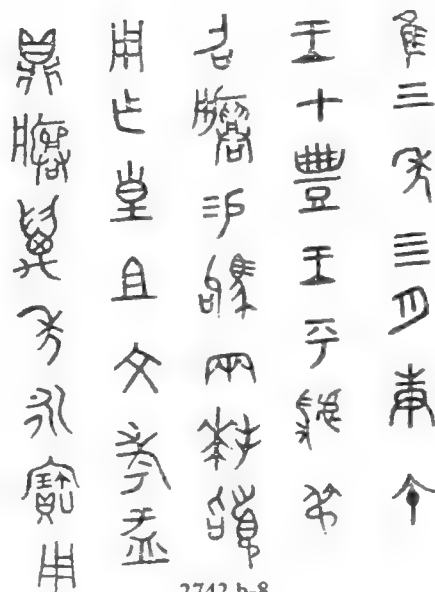 隹三年四月庚午
王才豐王乎虢弔
召𤼈易駒兩拜稽
用乍皇且文考盂
鼎𤼈萬年永寶用
2742.b-8